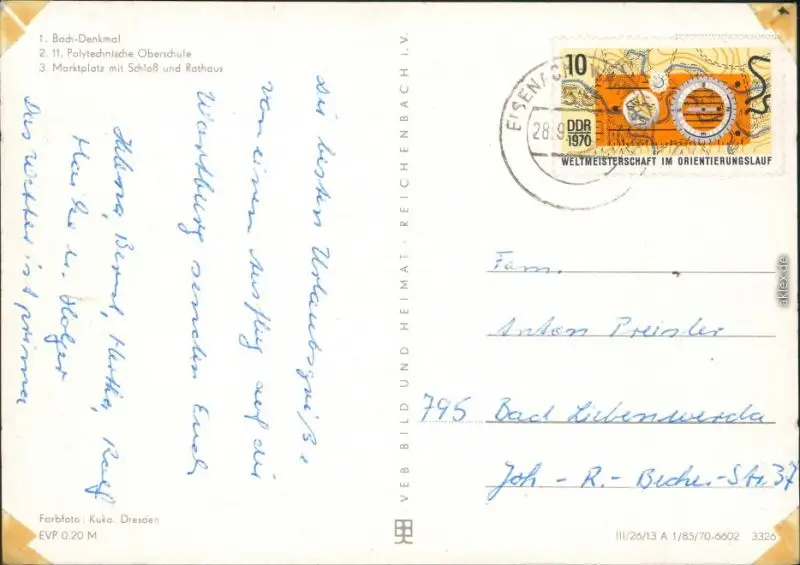 1. Bach-Denkmal
2. 11. Polytechnische Oberschule
3. Marktplatz mit Schloß und Rathaus
Die besten Urlaubsgrüße
von einem Ausflug auf die
Wartburg senden Euch
Helena, Bernd, Hertha, Ralf
Heike u. Holger
Das Wetter ist prima
Farbfoto: Kuka, Dresden
EVP 0,20 M
VEB BILD UND HEIMAT · REICHENBACH I. V.
EISENACH
28.9
10
DDR
1970
WELTMEISTERSCHAFT IM ORIENTIERUNGSLAUF
Fam.
Anton Preisler
795 Bad Liebenwerda
Joh - R. - Becher - Str. 37
III/26/13 A 1/85/70-6602 3326
aklex.de